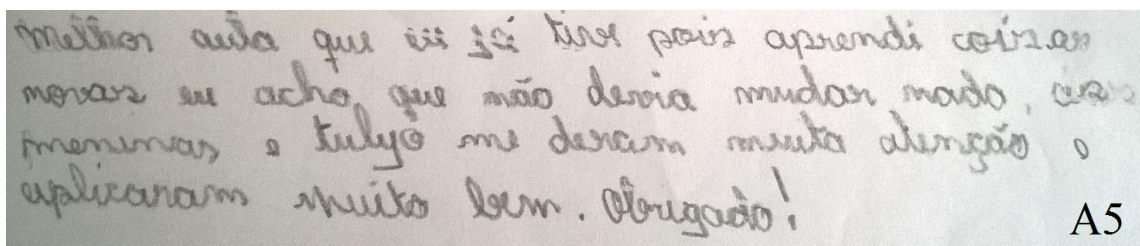 melhor aula que eu já tive pois aprendi coisas
novas eu acho que não devia mudar nada, as
meninas e tulyo me deram muita atenção e
aplicaram muito bem. Obrigado!
A5